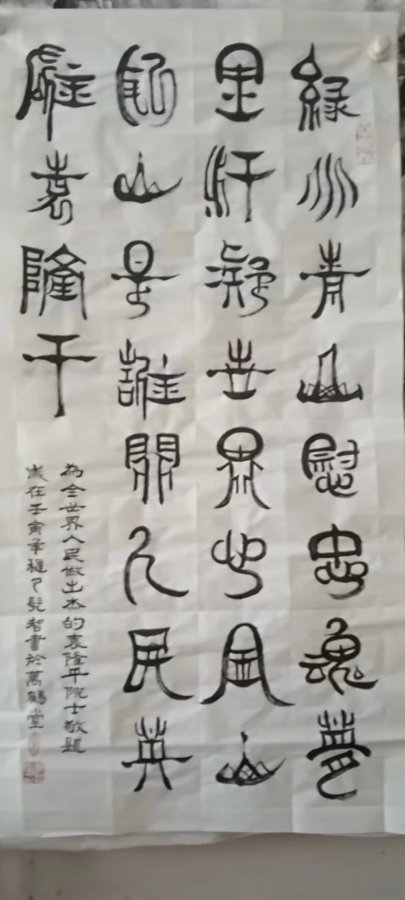 綠水青山慰忠魂夢
里汗凝世界山
山是誰開人民英
雄袁隆平
為全世界人民做出杰的袁隆平院士敬題
歲在壬寅年智書於萬鶴堂